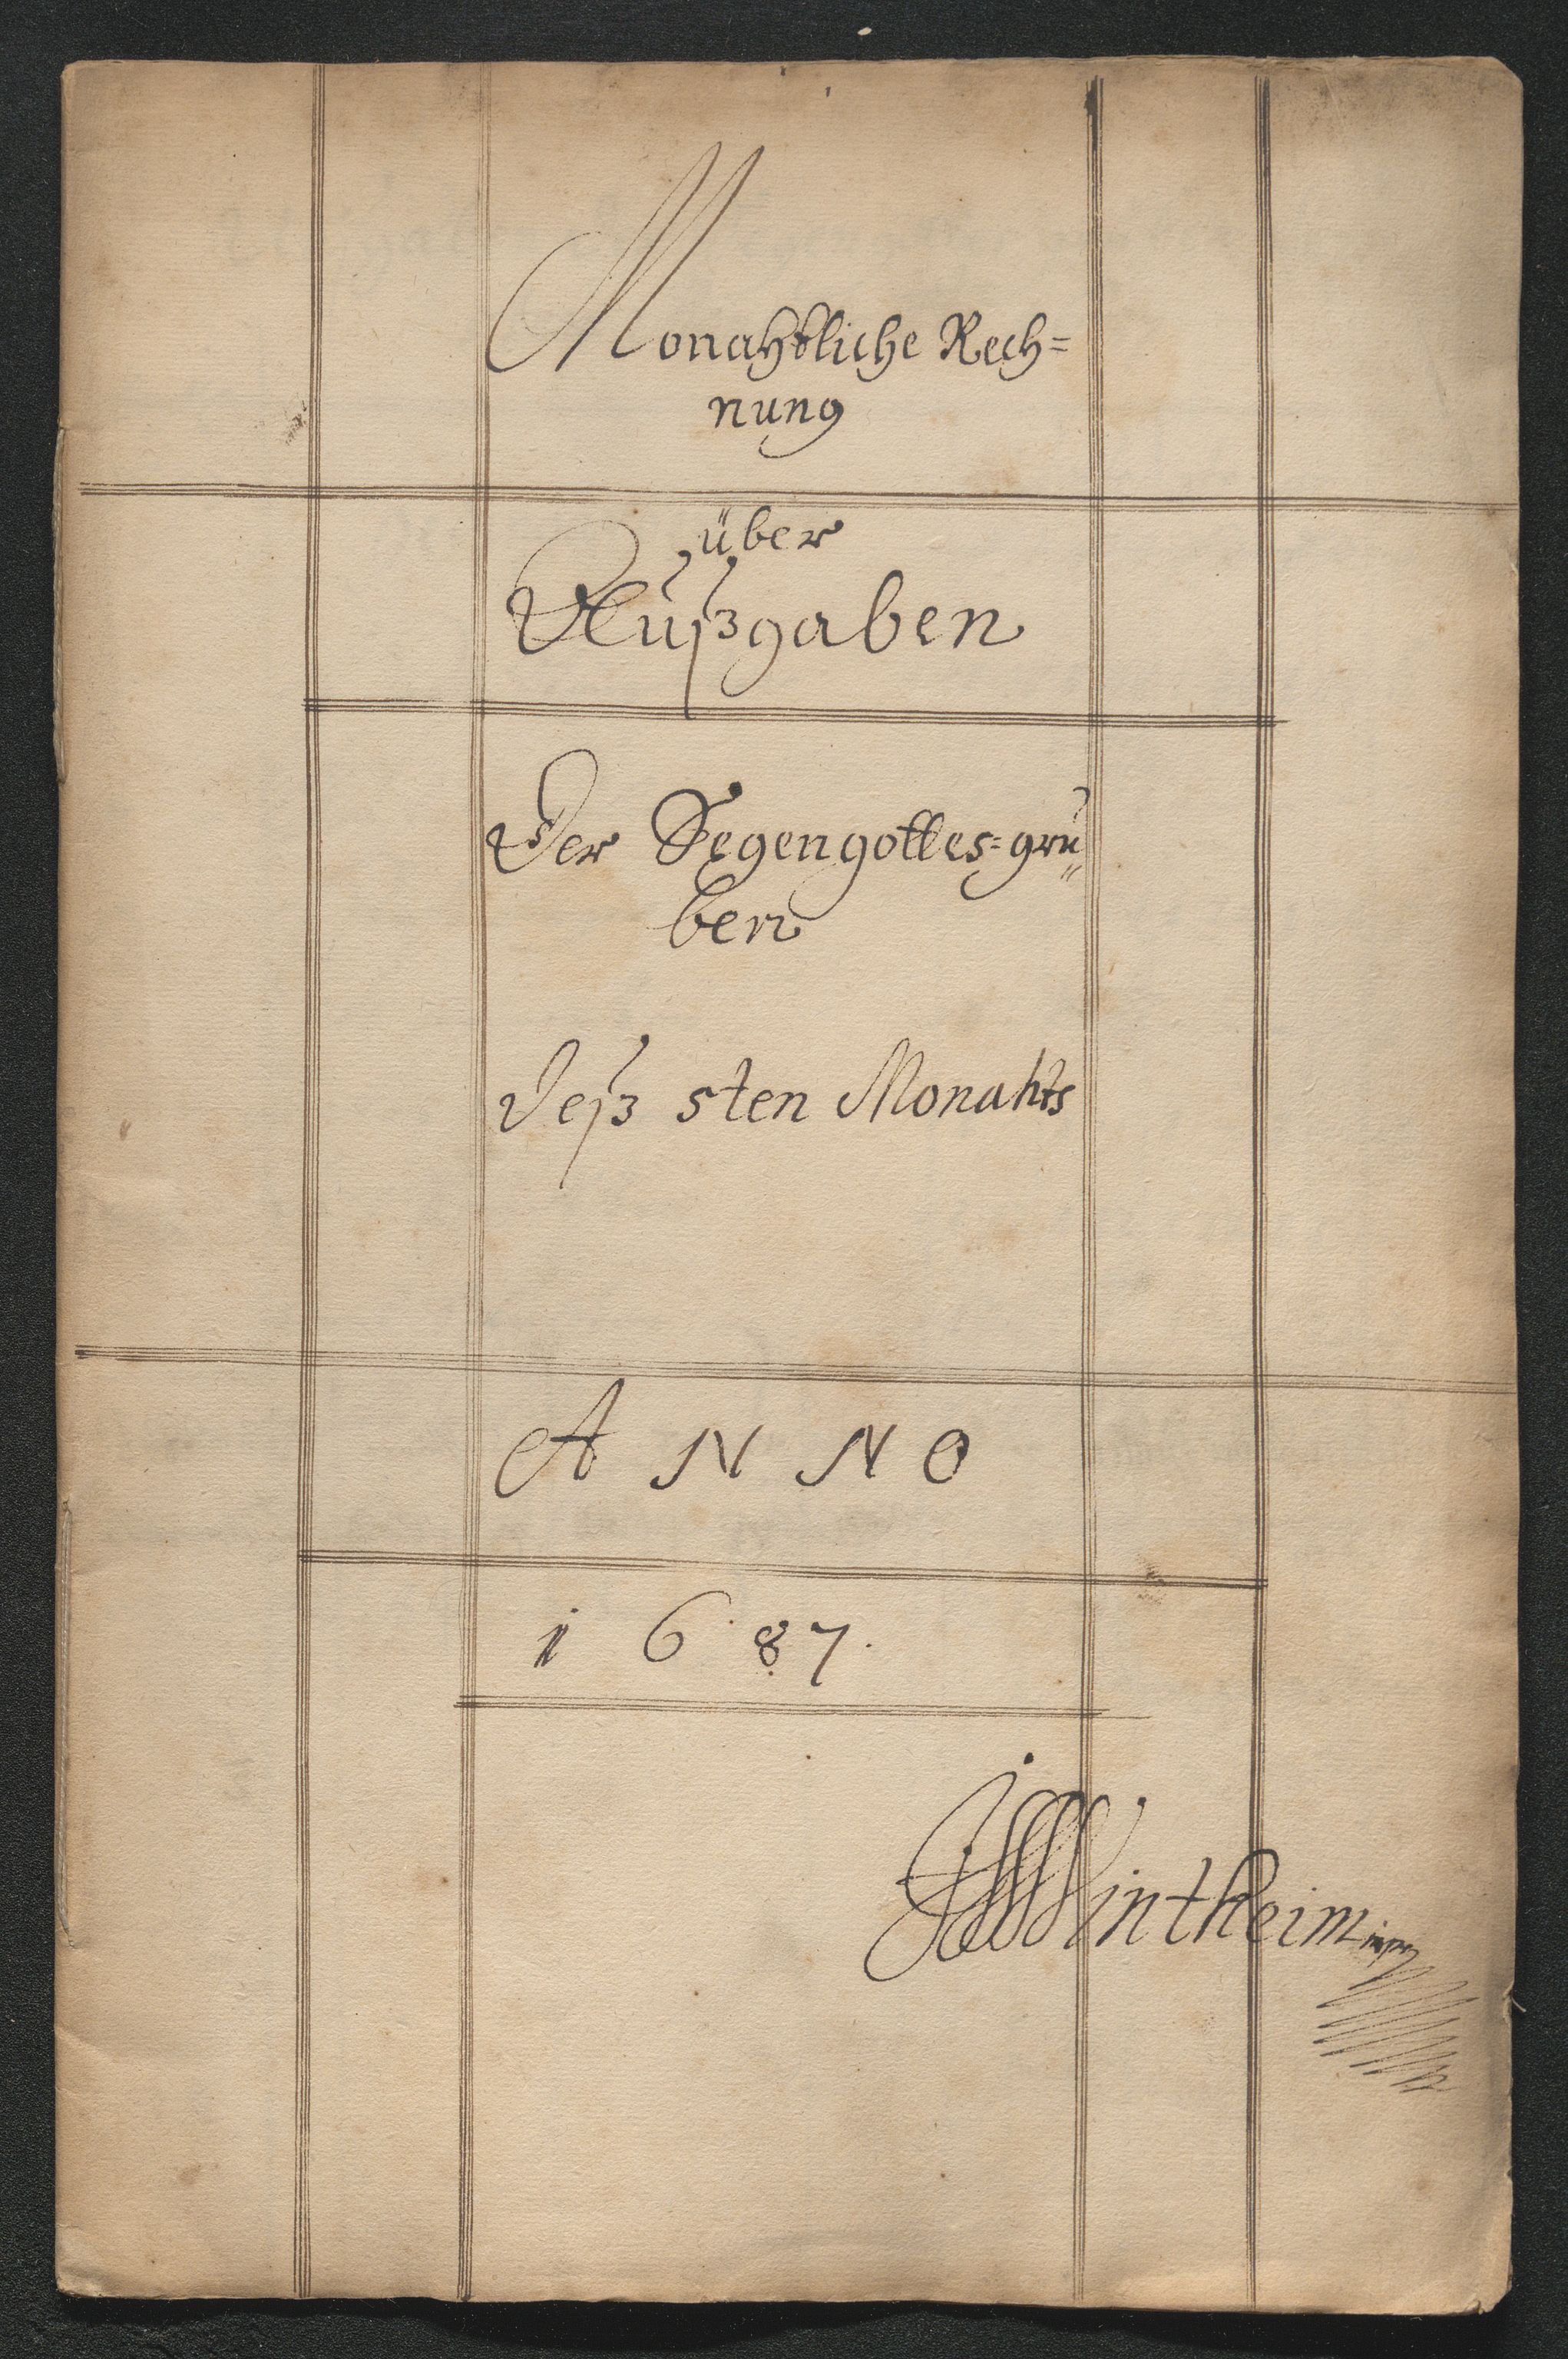 Monahtliche Rech=
nung
über
Außgaben
Der Segengottes=gru„
ben
Deß 5ten Monahts
ANNO
1687.
JWintheim mp